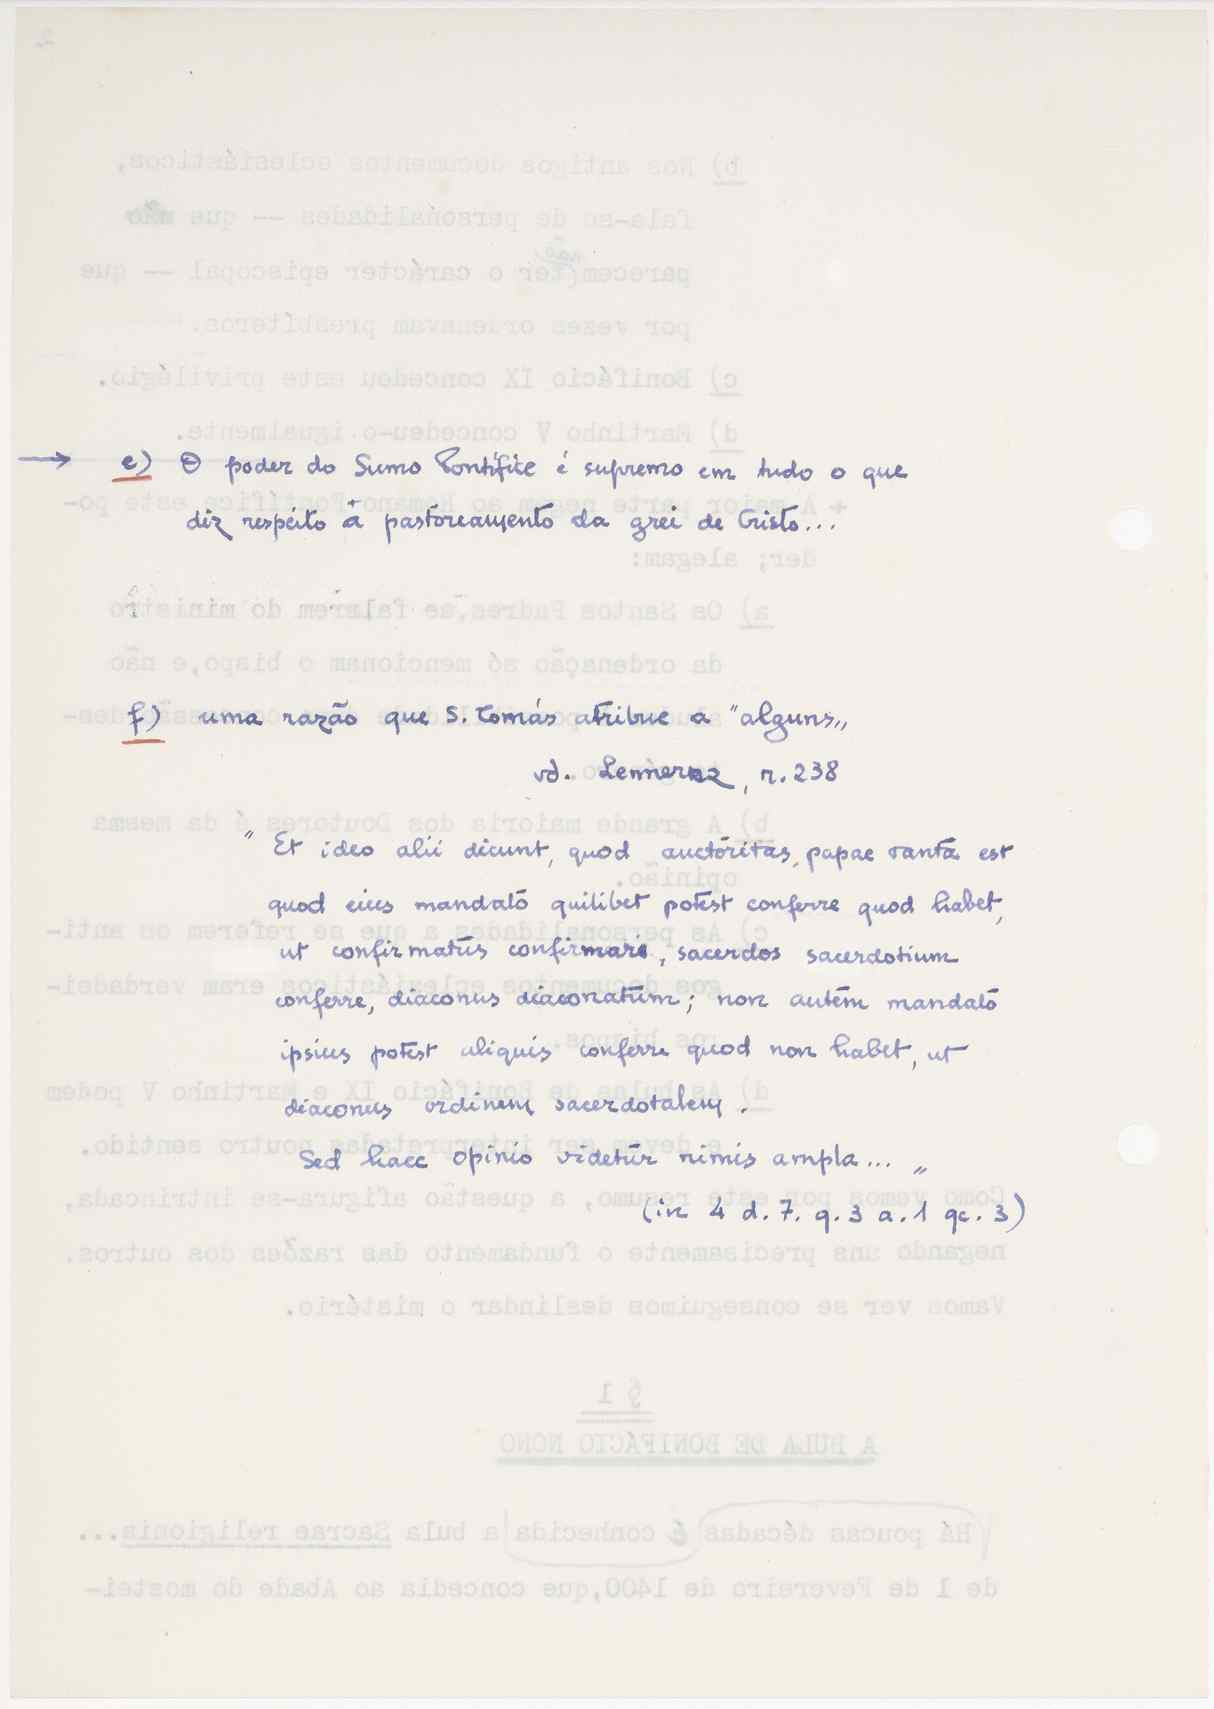 → e) O poder do Sumo Pontífice é supremo em tudo o que
diz respeito à pastoreamento da grei de Cristo...
f) uma razão que S. Tomás atribue a "alguns"
vd. Lennerz, n. 238
"Et ideo alii dicunt, quod auctoritas papae tanta est
quod eius mandato quilibet potest conferre quod habet,
ut confirmatus confirmare, sacerdos sacerdotium
conferre, diaconus diaconatum; non autem mandato
ipsius potest aliquis conferre quod non habet, ut
diaconus ordinem sacerdotalem.
Sed haec opinio videtur nimis ampla... "
(in 4 d. 7. q. 3 a. 1 qc. 3)